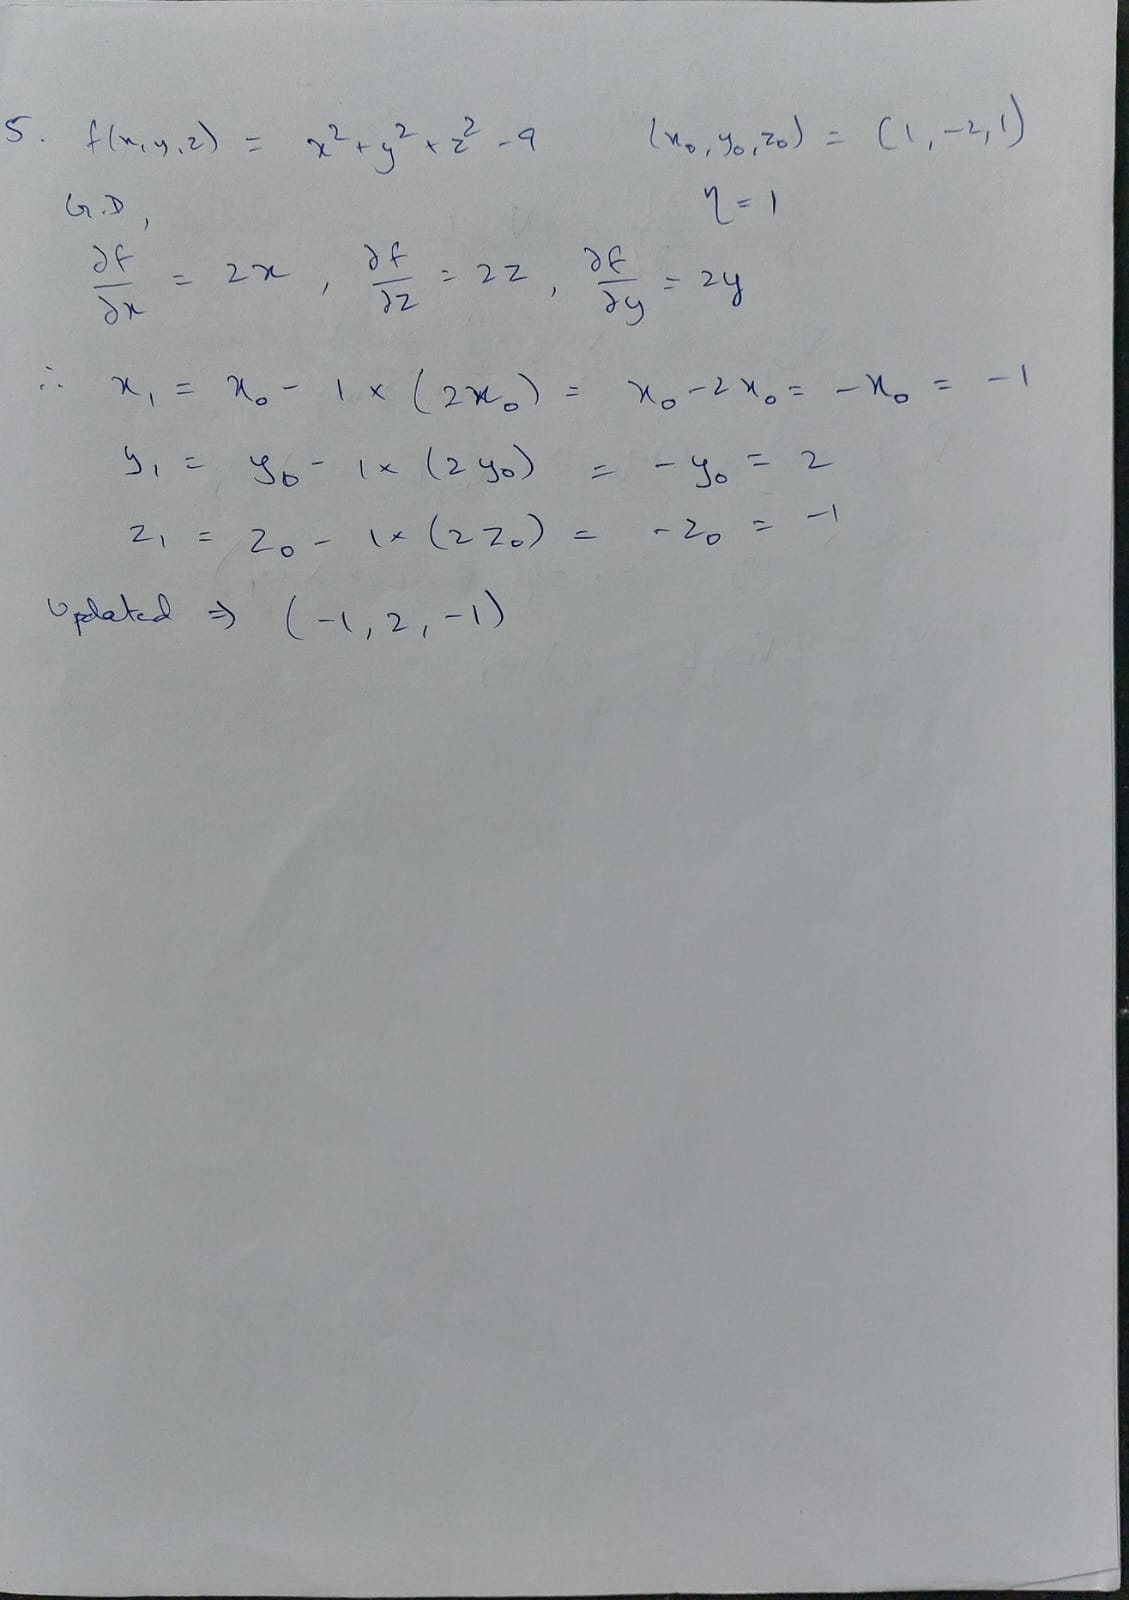 5. f(x,y,z) = x² + y² + z² - 9 (x₀, y₀, z₀) = (1, -2, 1)
G.D, η = 1
∂f/∂x = 2x , ∂f/∂z = 2z , ∂f/∂y = 2y
∴ x₁ = x₀ - 1 × (2x₀) = x₀ - 2x₀ = -x₀ = -1
y₁ = y₀ - 1× (2y₀) = -y₀ = 2
z₁ = z₀ - 1× (2z₀) = -z₀ = -1
Updated ⇒ (-1, 2, -1)